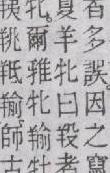 者多誤。因之竄
夏羊牝曰羖者
牝。爾雅牝羭牡
羠䍮羝羭師古